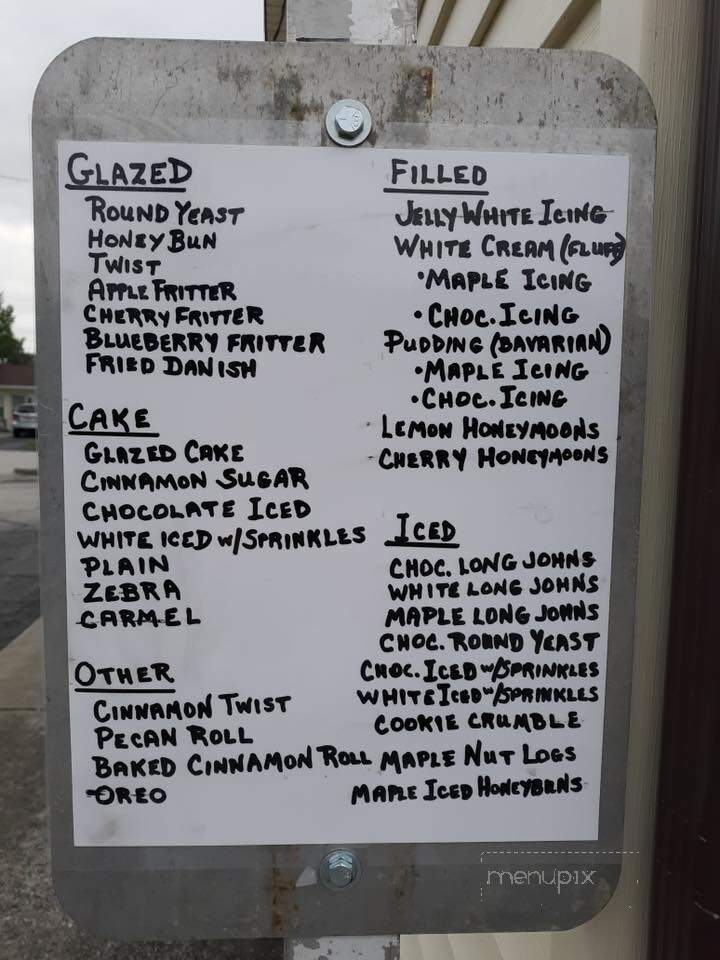 GLAZED
ROUND YEAST
HONEY BUN
TWIST
APPLE FRITTER
CHERRY FRITTER
BLUEBERRY FRITTER
FRIED DANISH
CAKE
GLAZED CAKE
CINNAMON SUGAR
CHOCOLATE ICED
WHITE ICED w/SPRINKLES
PLAIN
ZEBRA
CARMEL
OTHER
CINNAMON TWIST
PECAN ROLL
BAKED CINNAMON ROLL
OREO
FILLED
JELLY WHITE ICING
WHITE CREAM (FLUFF)
•MAPLE ICING
•CHOC. ICING
PUDDING (BAVARIAN)
•MAPLE ICING
•CHOC. ICING
LEMON HONEYMOONS
CHERRY HONEYMOONS
ICED
CHOC. LONG JOHNS
WHITE LONG JOHNS
MAPLE LONG JOHNS
CHOC. ROUND YEAST
CHOC. ICED w/SPRINKLES
WHITE ICED w/SPRINKLES
COOKIE CRUMBLE
MAPLE NUT LOGS
MAPLE ICED HONEYBUNS
menupix